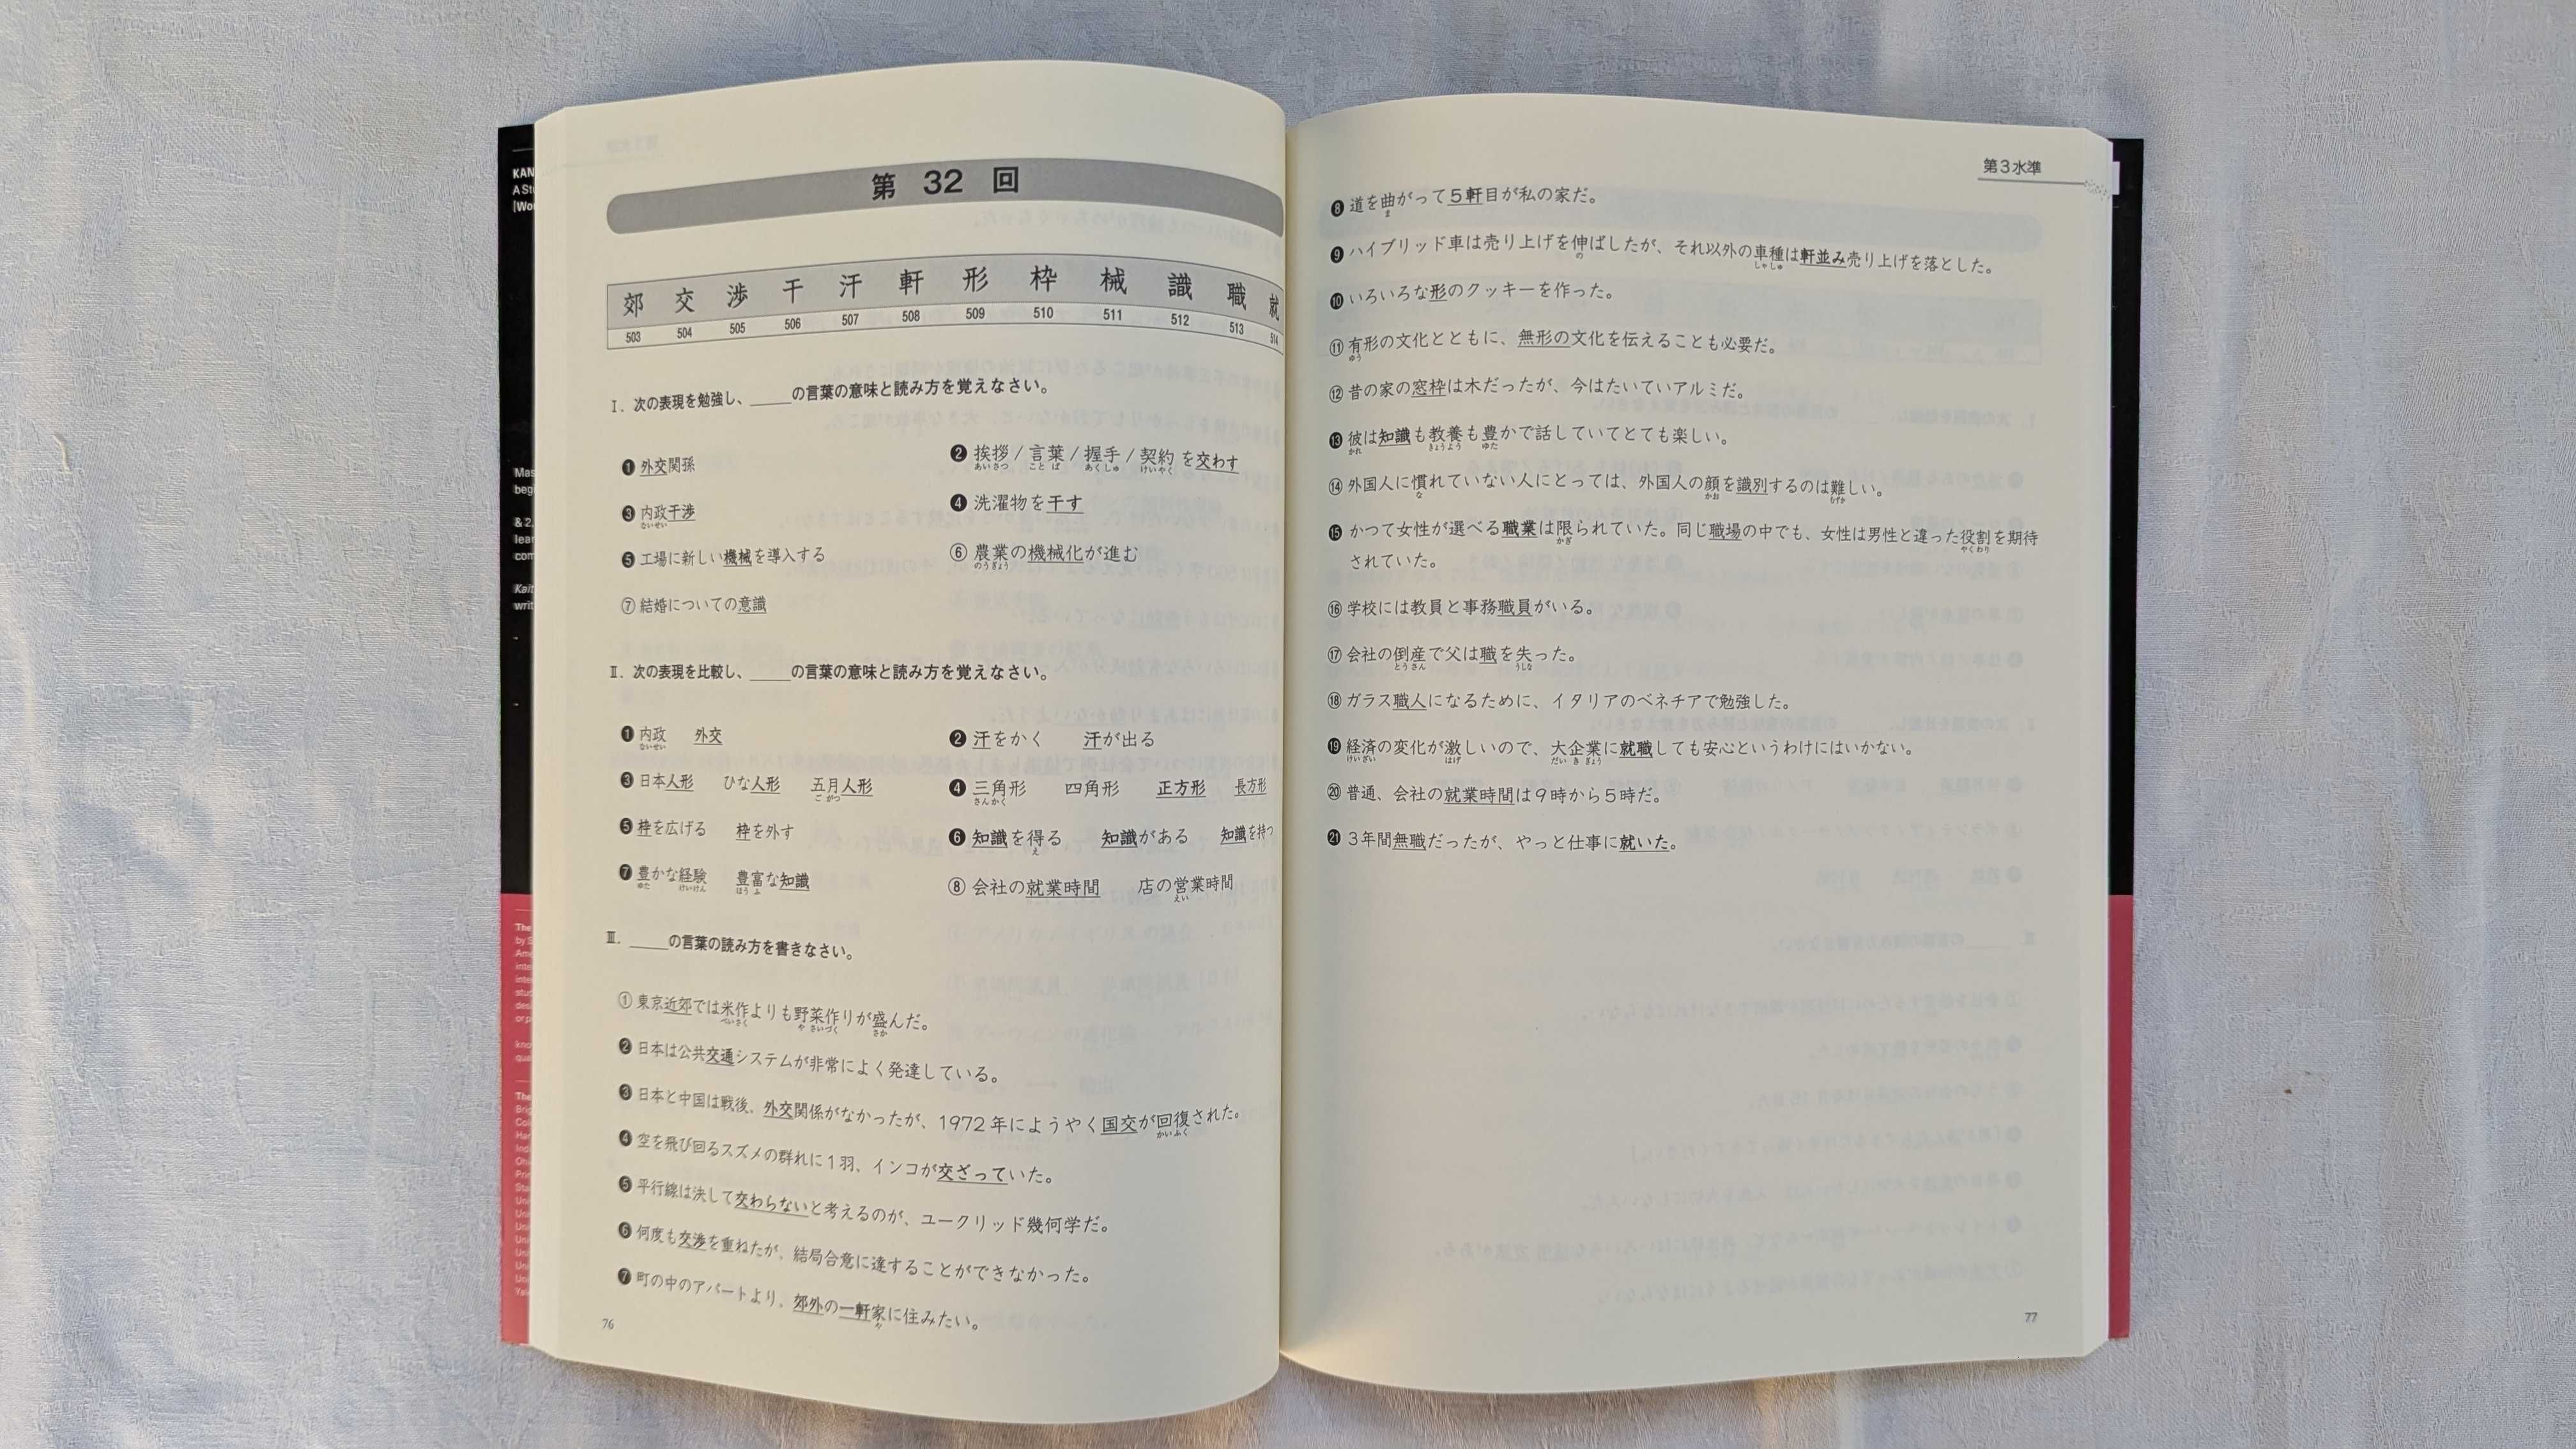 KAN
A St
(Wo
Mas
beg
& 2,
lear
com
Kait
writ
The
by S
Ame
inte
inte
stu
des
or p
kno
qua
The
Brig
Col
Har
Ind
Ohi
Pri
Sta
Uni
Uni
Uni
Uni
Uni
Uni
Uni
Yal
第 32 回
郊 交 渉 干 汗 軒 形 枠 械 識 職 就
503 504 505 506 507 508 509 510 511 512 513 514
Ⅰ. 次の表現を勉強し、_____の言葉の意味と読み方を覚えなさい。
❶ 外交関係
❷ 挨拶 / 言葉 / 握手 / 契約 を交わす
あいさつ ことば あくしゅ けいやく
❸ 内政干渉
ないせい
❹ 洗濯物を干す
❺ 工場に新しい機械を導入する
⑥ 農業の機械化が進む
のうぎょう
⑦ 結婚についての意識
Ⅱ. 次の表現を比較し、_____の言葉の意味と読み方を覚えなさい。
❶ 内政 外交
ないせい
❷ 汗をかく 汗が出る
❸ 日本人形 ひな人形 五月人形
ごがつ
❹ 三角形 四角形 正方形 長方形
さんかく
❺ 枠を広げる 枠を外す
❻ 知識を得る 知識がある 知識を持つ
え
❼ 豊かな経験 豊富な知識
ゆた けいけん ほうふ
⑧ 会社の就業時間 店の営業時間
えい
Ⅲ. _____の言葉の読み方を書きなさい。
① 東京近郊では米作よりも野菜作りが盛んだ。
べいさく やさいづく さか
❷ 日本は公共交通システムが非常によく発達している。
❸ 日本と中国は戦後、外交関係がなかったが、1972年にようやく国交が回復された。
かいふく
❹ 空を飛び回るスズメの群れに1羽、インコが交ざっていた。
❺ 平行線は決して交わらないと考えるのが、ユークリッド幾何学だ。
❻ 何度も交渉を重ねたが、結局合意に達することができなかった。
❼ 町の中のアパートより、郊外の一軒家に住みたい。
や
76
第3水準
❽ 道を曲がって5軒目が私の家だ。
ま
❾ ハイブリッド車は売り上げを伸ばしたが、それ以外の車種は軒並み売り上げを落とした。
の しゃしゅ
❿ いろいろな形のクッキーを作った。
⑪ 有形の文化とともに、無形の文化を伝えることも必要だ。
ゆう
⑫ 昔の家の窓枠は木だったが、今はたいていアルミだ。
⓭ 彼は知識も教養も豊かで話していてとても楽しい。
かれ きょうよう ゆた
⑭ 外国人に慣れていない人にとっては、外国人の顔を識別するのは難しい。
な かお むずか
⓯ かつて女性が選べる職業は限られていた。同じ職場の中でも、女性は男性と違った役割を期待
かぎ やくわり
されていた。
⑯ 学校には教員と事務職員がいる。
⑰ 会社の倒産で父は職を失った。
とうさん うしな
⑱ ガラス職人になるために、イタリアのベネチアで勉強した。
⓳ 経済の変化が激しいので、大企業に就職しても安心というわけにはいかない。
けいざい はげ だいきぎょう
⑳ 普通、会社の就業時間は9時から5時だ。
㉑ 3年間無職だったが、やっと仕事に就いた。
77